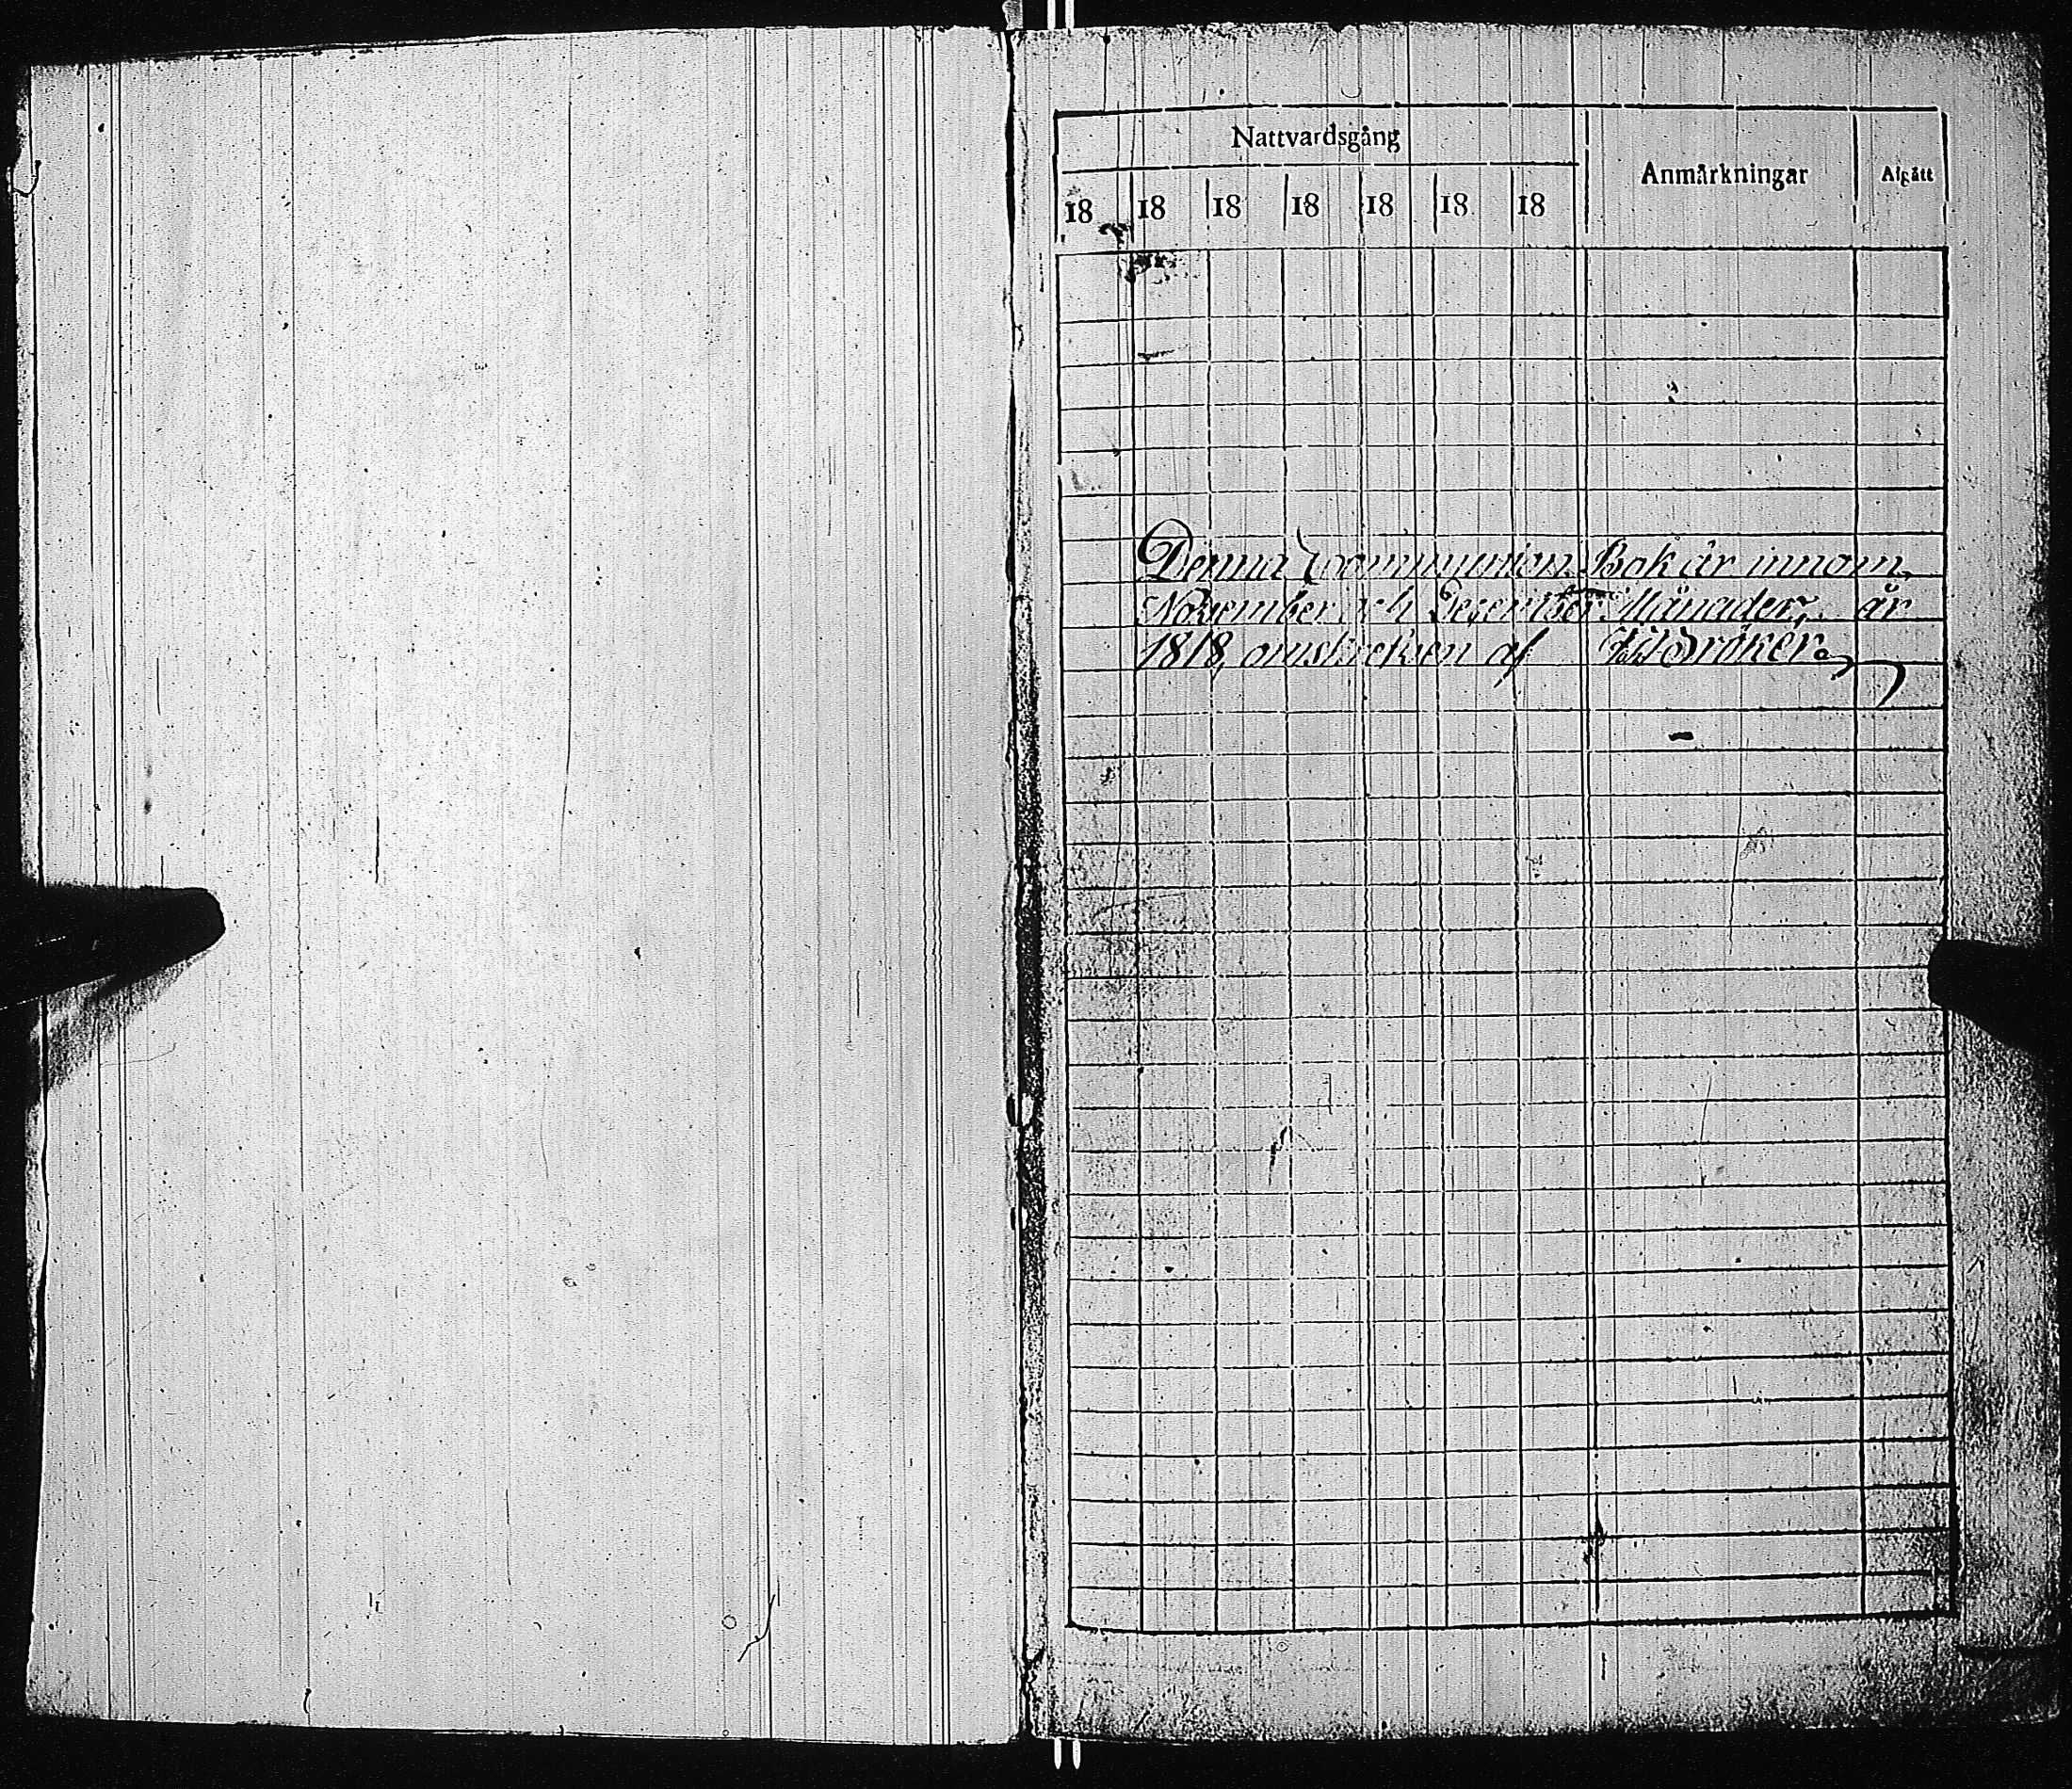 Nattvardsgång
Anmärkningar
Afgått
18 18 18 18 18 18 18
Denna Communion Bok är innom
November och December Månader, år
1818, omskrefven af